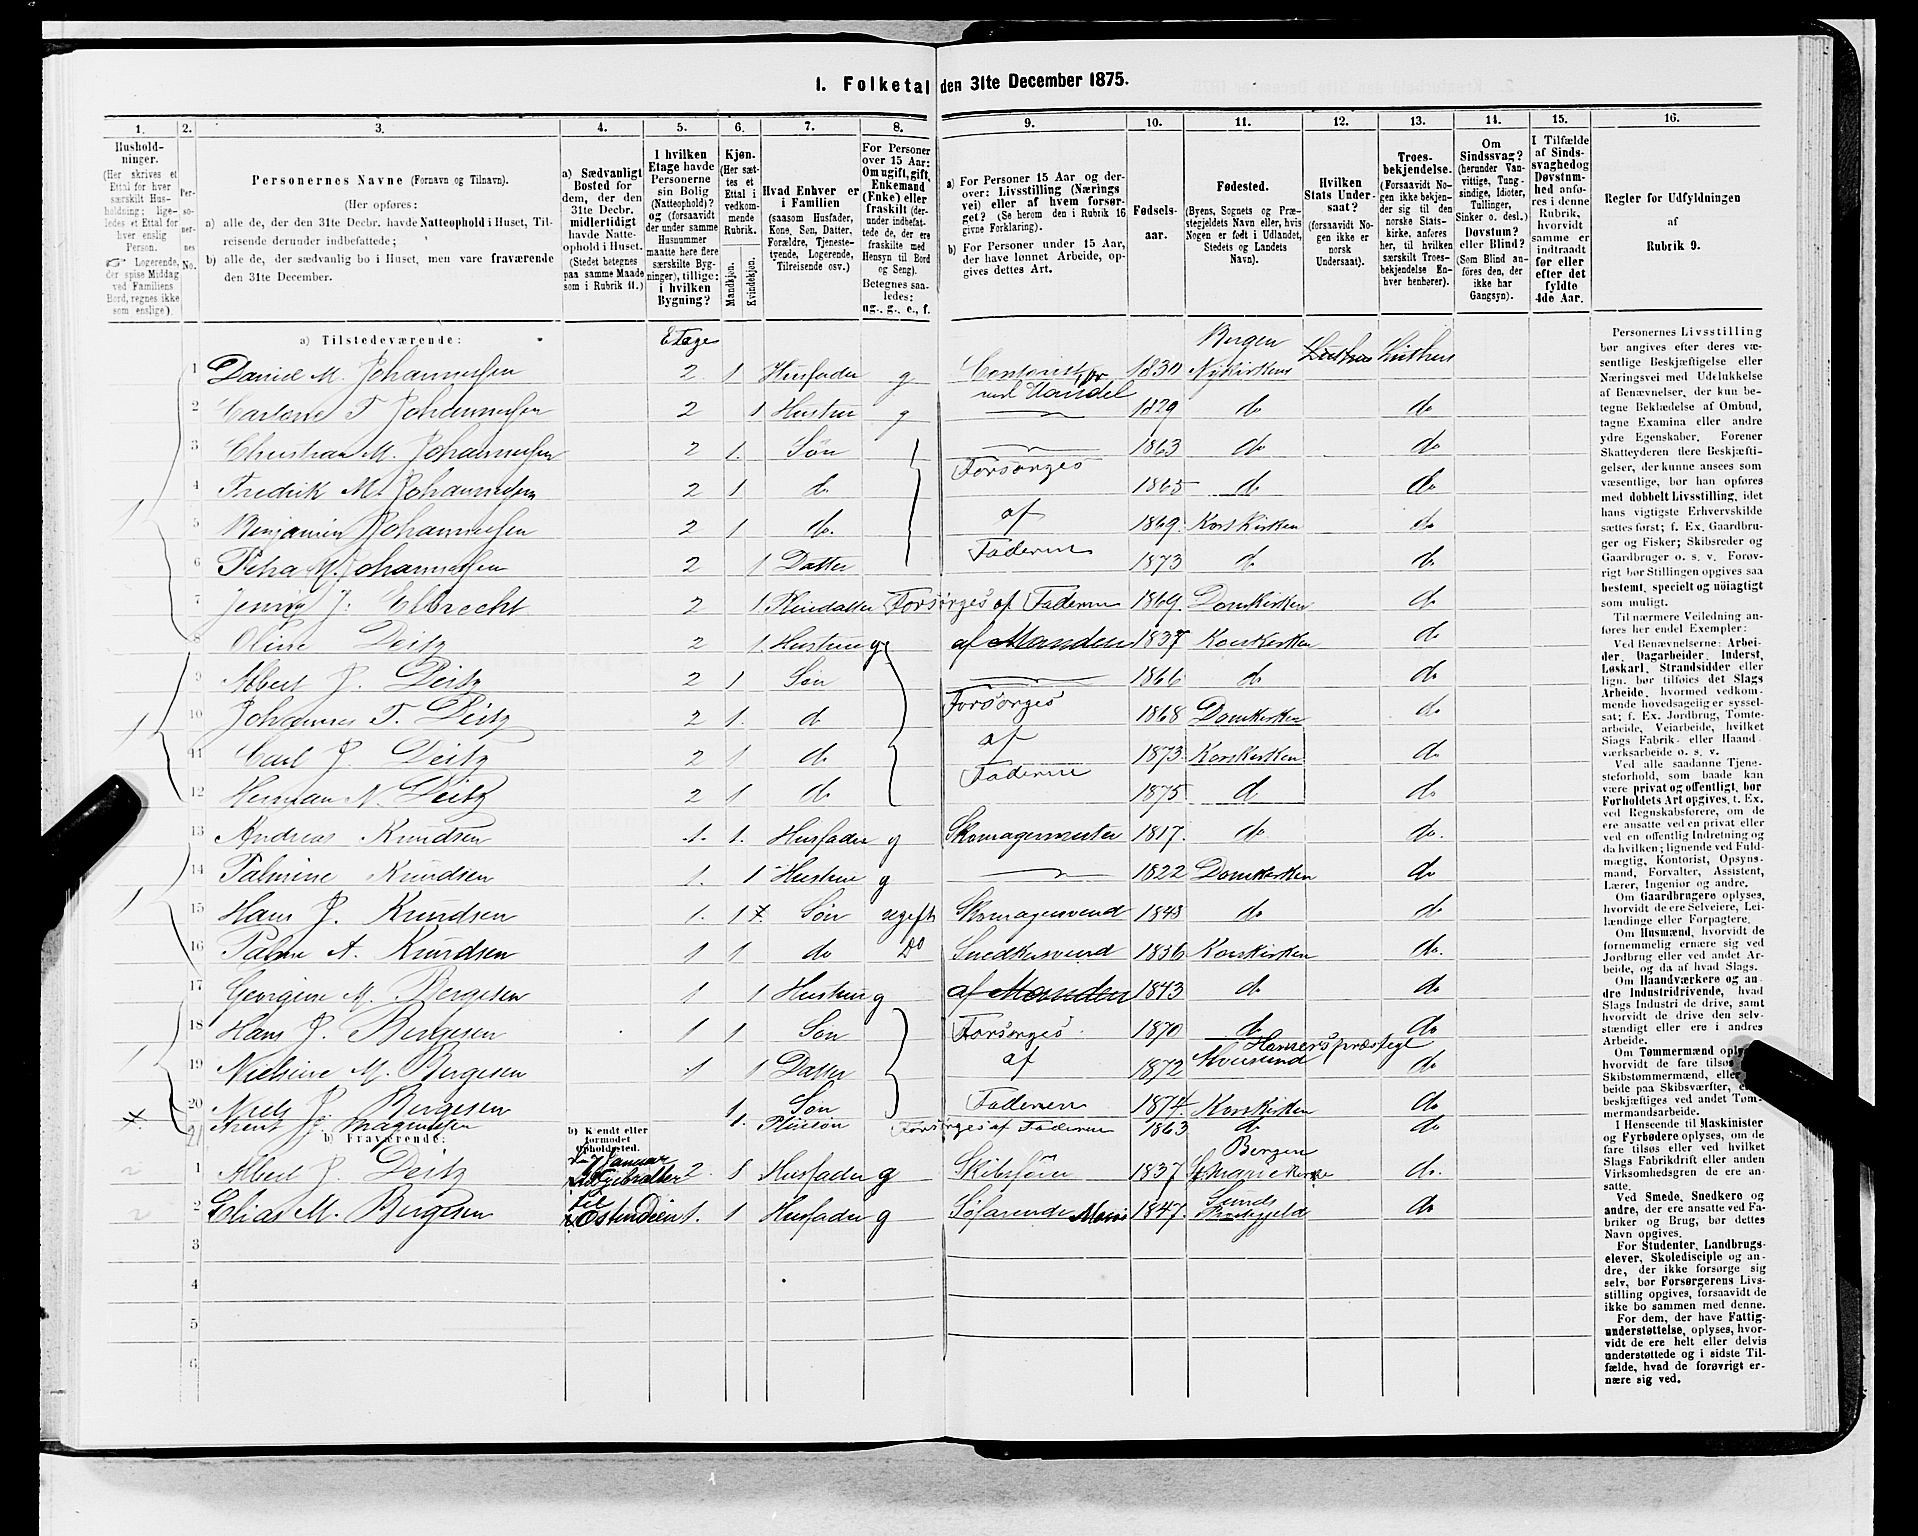 1. Folketal den 31te December 1875.
1. 2. 3. 4. 5. 6. 7. 8. 9. 10. 11. 12. 13. 14. 15. 16.
Hushold-
ninger.
(Her skrives et
Ettal for hver
særskilt Hus-
holdning; lige-
ledes et Ettal for
hver enslig
Person.
☞ Logerende,
der spise Middag
ved Familiens
Bord, regnes ikke
som enslige)
Per-
soner-
nes
No.
Personernes Navne (Fornavn og Tilnavn).
(Her opføres:
a) alle de, der den 31te Decbr. havde Natteophold i Huset, Til-
reisende derunder indbefattede;
b) alle de, der sædvanlig bo i Huset, men vare fraværende
den 31te December.
a) Sædvanligt
Bosted for
dem, der den
31te Decbr.
midlertidigt
havde Natte-
ophold i Huset.
(Stedet betegnes
paa samme Maade
som i Rubrik 11.)
I hvilken
Etage havde
Personerne
sin Bolig
(Natteophold)?
og (forsaavidt
der under samme
Husnummer
maatte høre flere
særskilte Byg-
ninger), tillige:
i hvilken
Bygning?
Kjøn.
(Her sæt-
tes et
Ettal i
vedkom-
mende
Rubrik.
Mandkjøn.
Kvindekjøn.
Hvad Enhver er
i Familien
(saasom Husfader,
Kone, Søn, Datter,
Forældre, Tjeneste-
tyende, Logerende,
Tilreisende osv.)
For Personer
over 15 Aar:
Om ugift, gift,
Enkemand
(Enke) eller
fraskilt (der-
under indbefat-
tede de, der ere
fraskilte med
Hensyn til Bord
og Seng).
Betegnes saa-
ledes:
ug., g., e., f.
a) For Personer 15 Aar og der-
over: Livsstilling (Nærings
vei) eller af hvem forsør-
get? (Se herom den i Rubrik 16
givne Forklaring).
b) For Personer under 15 Aar,
der have lønnet Arbeide, op-
gives dettes Art.
Fødsels-
aar.
Fødested.
(Byens, Sognets og Præ-
stegjeldets Navn eller, hvis
Nogen er født i Udlandet,
Stedets og Landets
Navn).
Hvilken
Stats Under-
saat?
(forsaavidt No-
gen ikke er
norsk
Undersaat).
Troes-
bekjendelse.
(Forsaavidt No-
gen ikke bekjen-
der sig til den
norske Stats-
kirke, anføres
her, til hvilken
særskilt Troes-
bekjendelse En-
hver henhører).
Om
Sindssvag?
(herunder Van-
vittige, Tung-
sindige, Idioter,
Tullinger,
Sinker o. desl.)
Døvstum?
eller Blind?
(Som Blind an-
føres den, der
ikke har
Gangsyn).
I Tilfælde
af Sinds-
svaghed og
Døvstum-
hed anfø-
res i denne
Rubrik,
hvorvidt
samme er
indtraadt
før eller
efter det
fyldte
4de Aar.
Regler for Udfyldningen
af
Rubrik 9.
a) Tilstedeværende: Etage Bergen
1 Daniel M. Johannessen 2 1 Husfader g Contorist 1830 Nykirkens Luthers Luthers
ved Handel
2 T. Johannessen 2 1 Hustru g 1829 do do
3 Christian M. Johannessen 2 1. Søn 1863 do do
Forsørges
4 Fredrik M. Johannessen 2 1 do 1865 do do
af
5 Benjamin Johannessen 2 1 do. 1869. Korskirken do
Faderen
6 Petra M. Johannessen 2 1 Datter 1873 do do
7 Jenny J. Elbrecht 2 1. Pleiedatter Forsørges af Faderen 1869. Domkirken do
8 Oline Deitz 2 1. Hustru g af Manden 1837 Korskirken do
9 Albert J. Deitz 2 1 Søn 1866 do do
Forsørges
10 Johannes T. Deitz 2 1. do 1868 Domkirken do
af
11 Carl J. Deitz 2 1 do 1873 Korskirken do
Faderen
12 Herman N. Deitz 2 1 do 1875 do do
13 Andreas Knudsen 1. 1. Husfader g Skomagermester 1817. do do.
14 Palmine Knudsen 1. 1 Hustru g 1822 Domkirken do
15 Hans J. Knudsen 1. 1 Søn ugift Skomagersvend 1848 do do
16 Palm A. Knudsen 1 1 do Do Snedkersvend 1856 Korskirken do.
17 Georgine M. Bergesen 1 1 Hustru g af Manden 1843 do do
18 Hans J. Bergesen 1 1 Søn Forsørges 1870 do do
Hammers præstegl
19 Nielsine M. Bergesen 1 1 Datter af 1872 Alversund do
20 Niels J. Bergesen 1. Søn Faderen 1874. Korskirken do
21 Arent J. Magnussen 1. Pleiesøn Forsørges af Faderen 1863 do do
b) Fraværende:
b) Kjendt eller
formodet
Opholdssted.
Januar Bergen
1 Albert J. Deitz Gibralter 2 1 Husfader g Skibsfører 1837 Mariekirke do.
til Sunds
2 Elias M. Bergesen Ostindien 1. 1 Husfader g Søfarende 1847. do
3
4
5
6
Personernes Livsstilling
bør angives efter deres væ-
sentlige Beskjæftigelse eller
Næringsvei med Udelukkelse
af Benævnelser, der kun be-
tegne Beklædelse af Ombud,
tagne Examina eller andre
ydre Egenskaber. Forener
Skatteyderen flere Beskjæfti-
gelser, der kunne ansees som
væsentlige, bør han opføres
med dobbelt Livsstilling, idet
hans vigtigste Erhvervskilde
sættes først; f. Ex. Gaardbru-
ger og Fisker; Skibsreder og
Gaardbruger o. s. v. Forøv-
rigt bør Stillingen opgives saa
bestemt, specielt og nøiagtigt
som muligt.
Til nærmere Veiledning an-
føres her endel Exempler:
Ved Benævnelserne: Arbei-
der, Dagarbeider, Inderst,
Løskarl, Strandsidder eller
lign. bør tilføies det Slags
Arbeide, hvormed vedkom-
mende hovedsagelig er syssel-
sat; f. Ex. Jordbrug, Tomte-
arbeide, Veiarbeide, hvilket
Slags Fabrik- eller Haand-
værksarbeide o. s. v.
Ved alle saadanne Tjene-
steforhold, som baade kan
være privat og offentligt, bør
Forholdets Art opgives, t. Ex.
ved Regnskabsførere, om de
ere ansatte ved en privat eller
ved en offentlig Indretning og
da hvilken; lignende ved Fuld-
mægtig, Kontorist, Opsyns-
mand, Forvalter, Assistent,
Lærer, Ingeniør og andre.
Om Gaardbrugere oplyses,
hvorvidt de ere Selveiere, Lei-
lændinge eller Forpagtere.
Om Husmænd, hvorvidt de
fornemmelig ernære sig ved
Jordbrug eller ved andet Ar-
beide, og da af hvad Slags.
Om Haandværkere og an-
dre Industridrivende, hvad
Slags Industri de drive, samt
hvorvidt de drive den selv-
stændigt eller ere i andres
Arbeide.
Om Tømmermænd oply
hvorvidt de fare tilsø
Skibstømmermænd, elle
beide paa Skibsværfter, e
beskjæftiges ved andet Tøm-
mermandsarbeide.
I Henseende til Maskinister
og Fyrbødere oplyses, om de
fare tilsøs eller ved hvilket
Slags Fabrikdrift eller anden
Virksomhedsgren de ere an-
satte.
Ved Smede, Snedkere og
andre, der ere ansatte ved Fa-
briker og Brug, bør dettes
Navn opgives.
For Studenter, Landbrugs-
elever, Skoledisciple og an-
dre, der ikke forsørge sig
selv, bør Forsørgerens Livs-
stilling opgives, forsaavidt de
ikke bo sammen med denne.
For dem, der have Fattig-
understøttelse, oplyses, hvor-
vidt de ere helt eller delvis
understøttede og i sidste Til-
fælde, hvad de forøvrigt er-
nære sig ved.